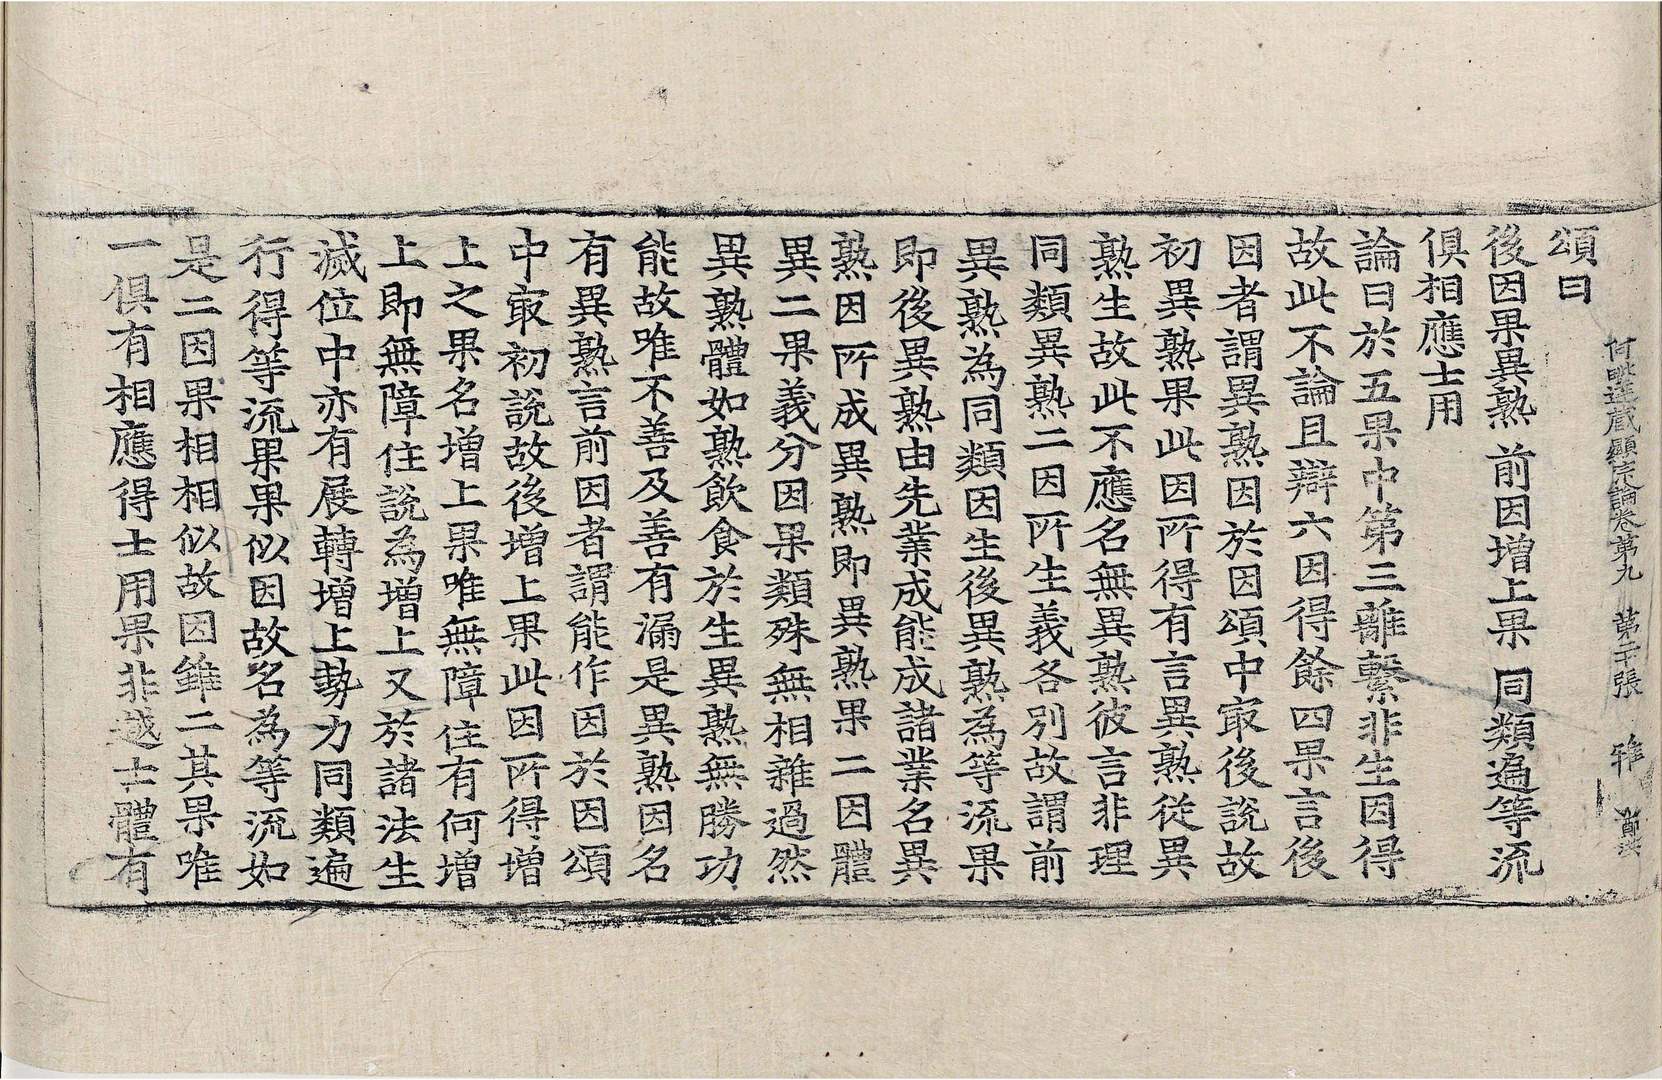 阿毗達藏顯宗論卷第九　第二十張　雅
頌曰
後因果異熟　前因增上果　同類遍等流
俱相應士用
論曰於五果中第三離繫非生因得
故此不論且辯六因得餘四果言後
因者謂異熟因於因頌中㝡後說故
初異熟果此因所得有言異熟從異
熟生故此不應名無異熟彼言非理
同類異熟二因所生義各別故謂前
異熟為同類因生後異熟為等流果
即後異熟由先業成能成諸業名異
熟因所成異熟即異熟果二因體
異二果義分因果類殊無相雜過然
異熟體如熟飲食於生異熟無勝功
能故唯不善及善有漏是異熟因名
有異熟言前因者謂能作因於因頌
中㝡初說故後增上果此因所得增
上之果名增上果唯無障住有何增
上即無障住說為增上又於諸法生
滅位中亦有展轉增上勢力同類遍
行得等流果果似因故名為等流如
是二因果相相似故因雖二其果唯
一俱有相應得士用果非越士體有